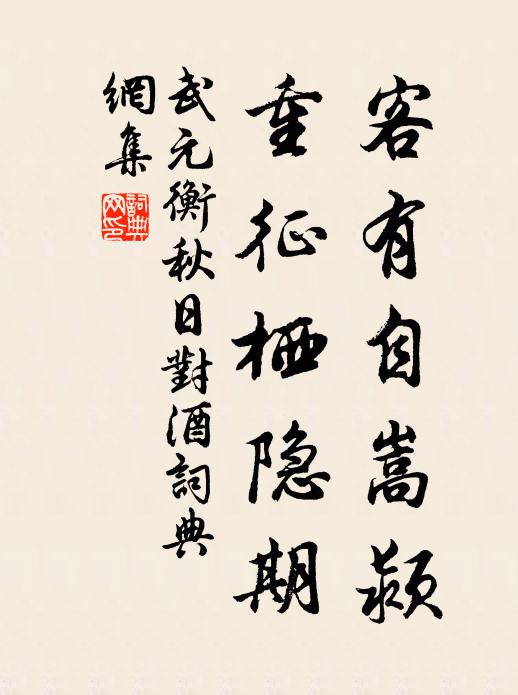 客有自嵩颍
重征栖隐期
武元衡秋日對酒詞典
網集
詞典
网印